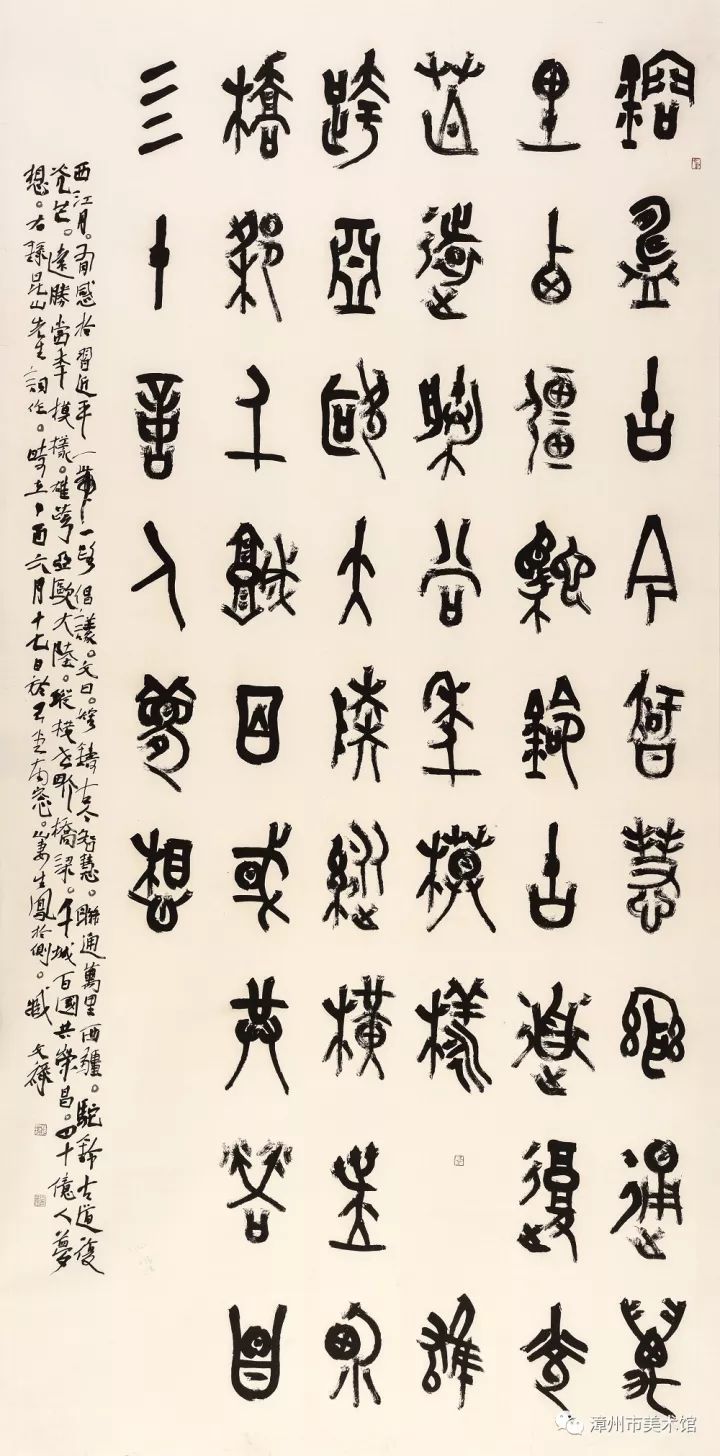 鎔鑄古今智慧聯通萬
里西疆駝鈴古道復光
芒遠勝當年模樣雄
跨亞歐大陸縱橫世界
橋梁千城百國共榮昌
三十億人夢想
西江月。有感於習近平一帶一路倡議。文曰。鎔鑄古今智慧。聯通萬里西疆。駝鈴古道復
光芒。遠勝當年模樣。雄跨亞歐大陸。縱橫世界橋梁。千城百國共榮昌。四十億人夢
想。右昆山先生詞作。時在丁酉六月十七日於南窗。妻生鳳於側。臧
漳州市美术馆